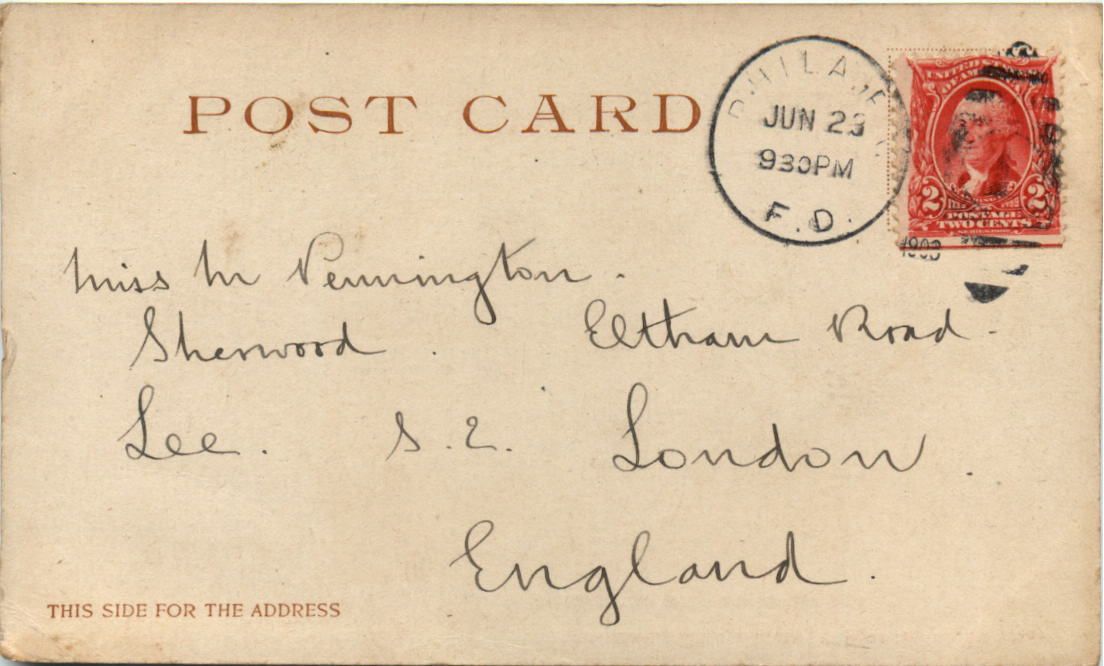 POST CARD
PHILADE
JUN 23
930PM
F.D.
1903
UNITED
OF AM
2 2
POSTAGE
TWO CENTS
Miss M Pennington.
Sherwood. Eltham Road.
Lee. S.E. London.
England.
THIS SIDE FOR THE ADDRESS